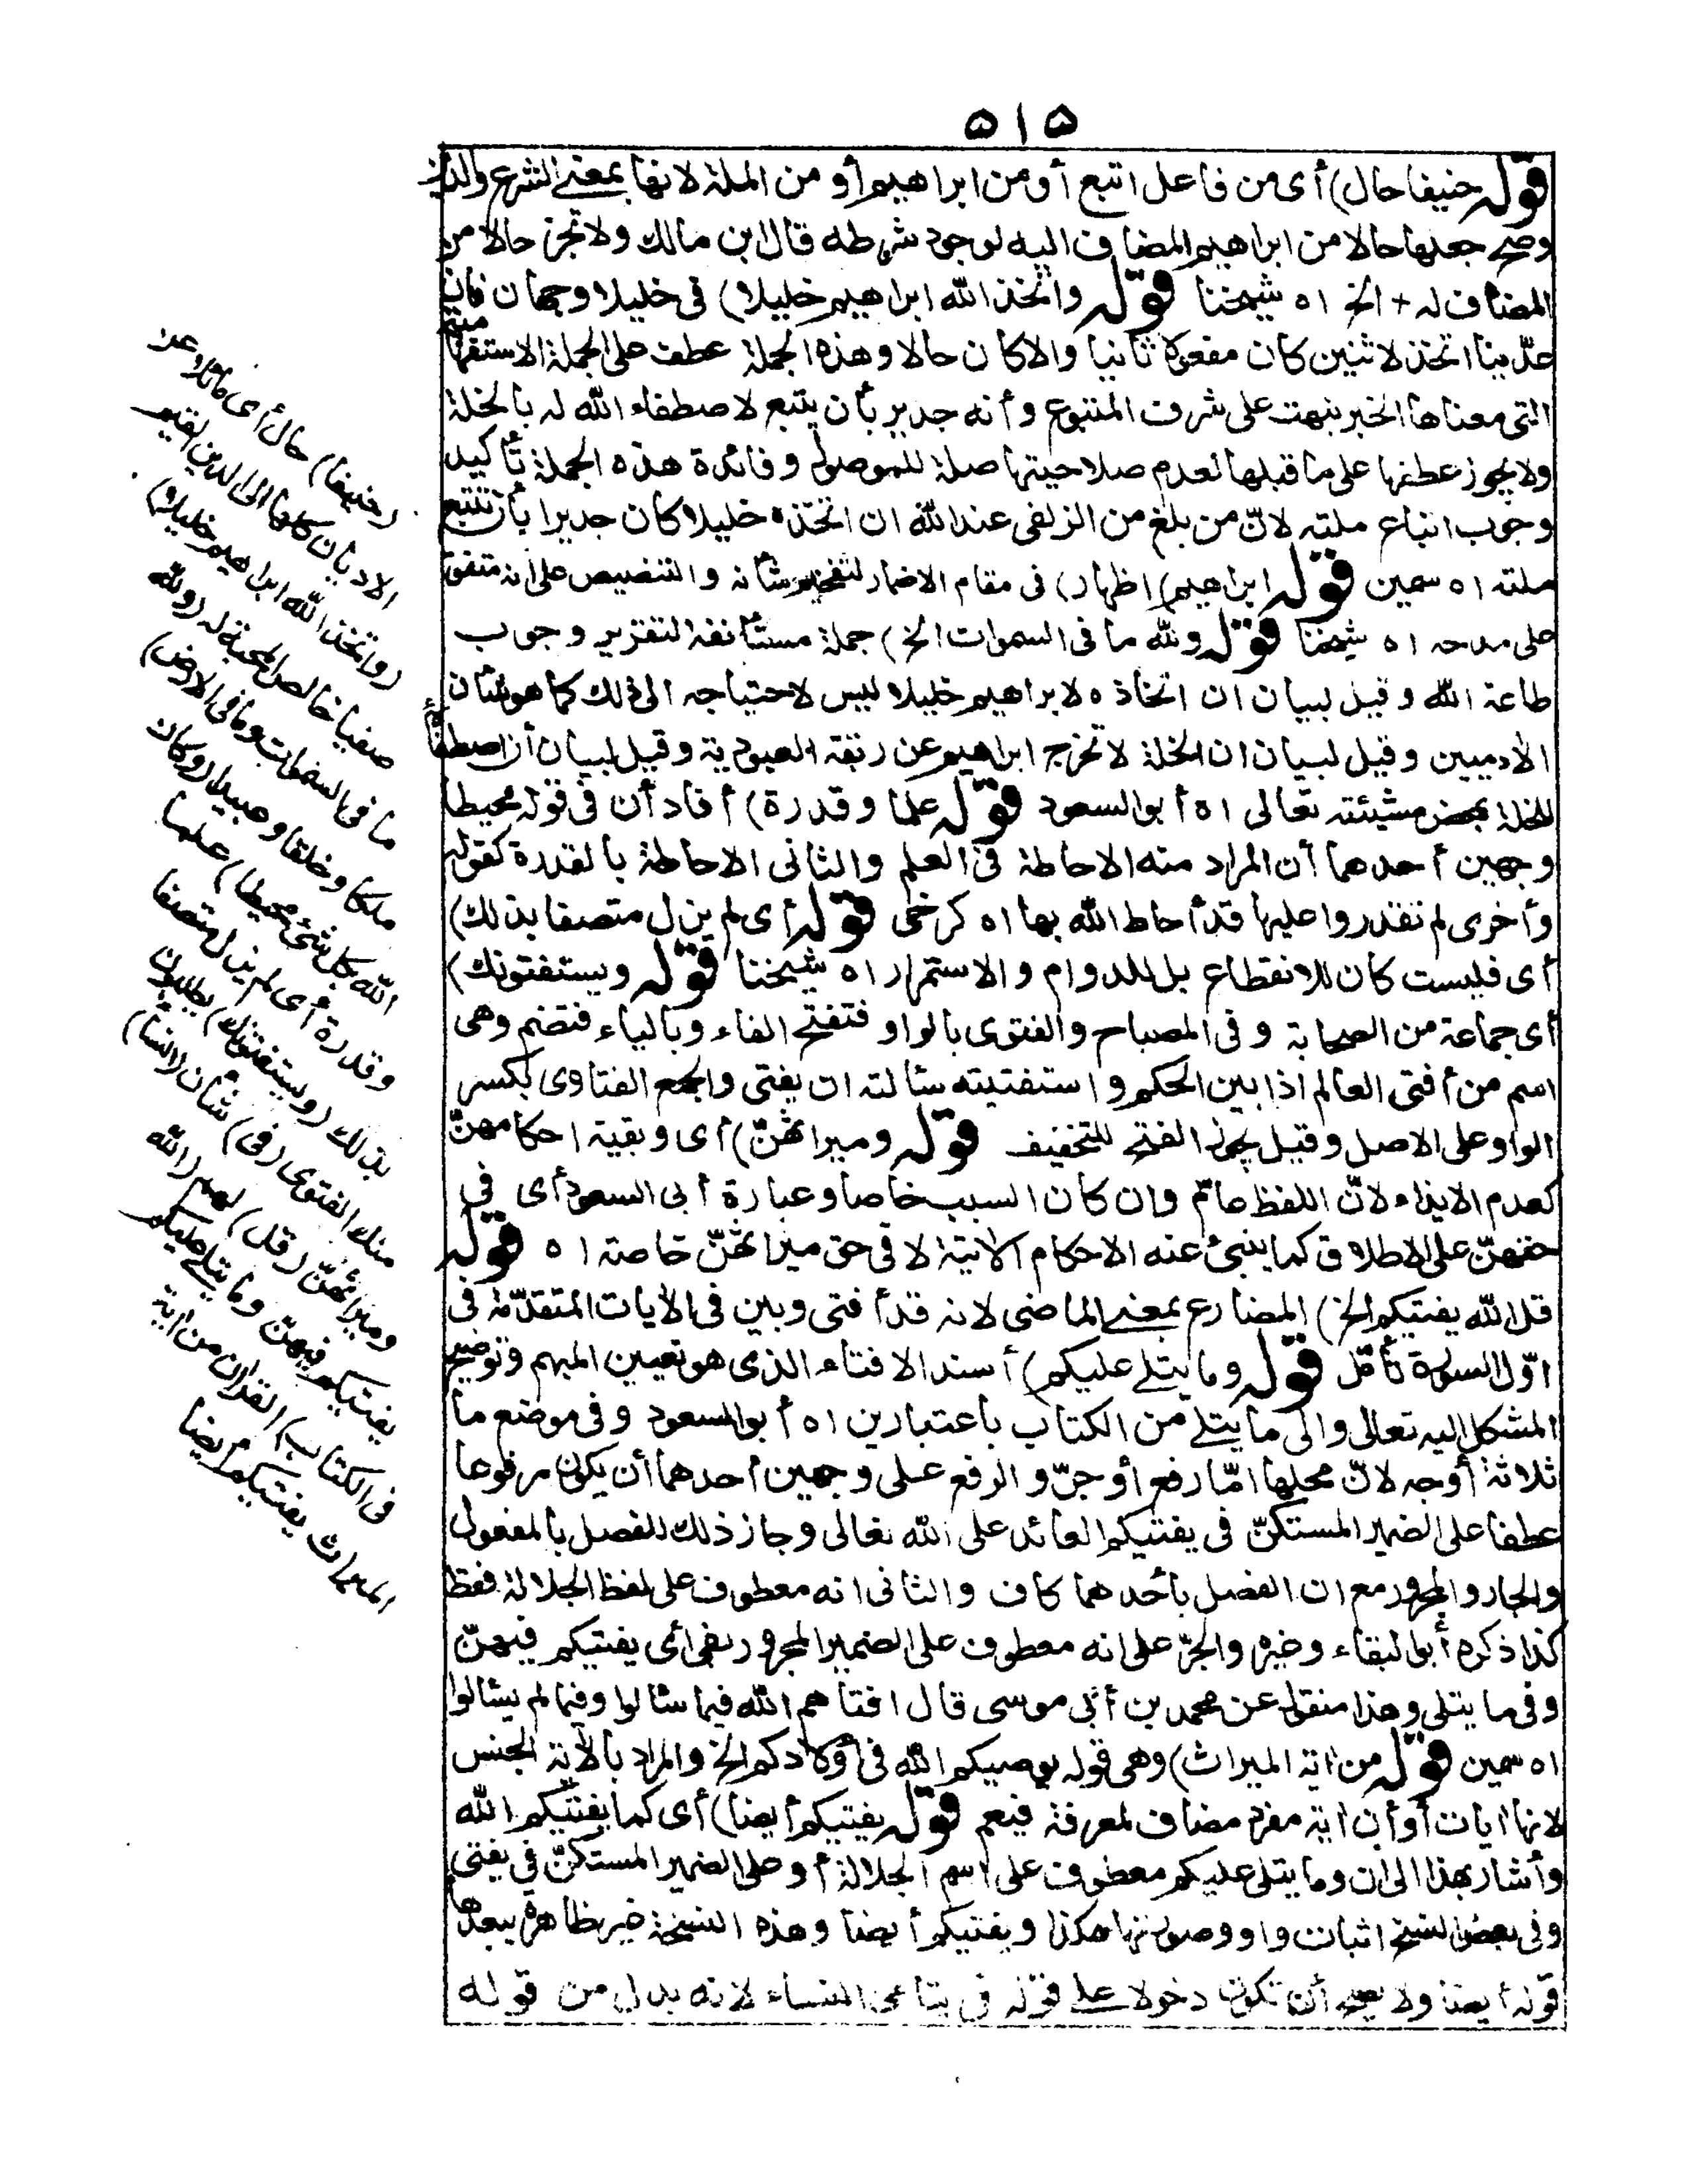 ٥١٥
قوله حنيفا حال) أى من فاعل اتبع أو من ابراهيم أو من الملة لانها بمعنى الشرع والدين
وصح جعلها حالا من ابراهيم المضاف اليه لوجود شرطه قال ابن مالك ولا تجز حالا من
المضاف له + الخ اه شيخنا قوله واتخذ الله ابراهيم خليلا) فى خليلا وجهان فان
عدّينا اتخذ لاثنين كان مفعولا ثانيا والا كان حالا وهذه الجملة عطف على الجملة الاستفهامية
التى معناها الخبر نبهت على شرف المتبوع وأنه جدير بأن يتبع لاصطفاء الله له بالخلة
ولا يجوز عطفها على ما قبلها لعدم صلاحيتها صلة للموصول وفائدة هذه الجملة تأكيد
وجوب اتباع ملته لانّ من بلغ من الزلفى عند الله ان اتخذه خليلا كان جديرا بأن تتبع
ملته اه سمين قوله ابراهيم) اظهار) فى مقام الاضمار لتفخيم شأنه والتنصيص على انه متفق
على مدحه اه شيخنا قوله ولله ما فى السموات الخ) جملة مستأنفة لتقرير وجوب
طاعة الله وقيل لبيان ان اتخاذه لابراهيم خليلا ليس لاحتياجه الى ذلك كما هو شأن
الآدميين وقيل لبيان ان الخلة لا تخرج ابراهيم عن رتقة العبودية وقيل لبيان أن اصطفاءه
للخلة بمحض مشيئته تعالى اه أبو السعود قوله علما وقدرة) أفاد أن فى قوله محيطا
وجهين أحدهما أن المراد منه الاحاطة فى العلم والثانى الاحاطة بالقدرة كقوله
وأخرى لم تقدروا عليها قد أحاط الله بها اه كرخى قوله أى لم يزل متصفا بذلك)
أى فليست كان للانقطاع بل للدوام والاستمرار اه شيخنا قوله ويستفتونك)
أى جماعة من الصحابة وفى المصباح والفتوى بالواو فتفتح الفاء وبالياء فتضم وهى
اسم من أفتى العالم اذا بين الحكم واستفتيته سألته ان يفتى والجمع الفتاوى بكسر
الواو على الاصل وقيل يجوز الفتح للتخفيف قوله وميراثهنّ) أى وبقية احكامهنّ
كعدم الايذاء لانّ اللفظ عامّ وان كان السبب خاصا وعبارة أبى السعود أى فى
حقهنّ على الاطلاق كما ينبئ عنه الاحكام الآتية لا فى حق ميراثهنّ خاصة اه قوله
قل الله يفتيكم الخ) المضارع بمعنى الماضى لانه قد أفتى وبين فى الآيات المتقدّمة فى
اوّل السورة تأمّل قوله وما يتلى عليكم) أسند الافتاء الذى هو تعيين المبهم وتوضيح
المشكل اليه تعالى والى ما يتلى من الكتاب باعتبارين اه أبو السعود وفى موضع ما
ثلاثة أوجه لانّ محلها امّا رفع أو جرّ والرفع على وجهين أحدهما أن يكون مرفوعا
عطفا على الضمير المستكنّ فى يفتيكم العائد على الله تعالى وجاز ذلك للفصل بالمفعول
والجار والمجرور مع ان الفصل بأحدهما كاف والثانى انه معطوف على لفظ الجلالة فقط
كذا ذكره أبو البقاء وغيره والجرّ على انه معطوف على الضمير المجرور بفى أى يفتيكم فيهنّ
وفى ما يتلى وهذا منقول عن محمد بن أبى موسى قال افتاهم الله فيما سألوا وفيما لم يسألوا
اه سمين قوله من اية الميراث) وهى قوله يوصيكم الله فى أولادكم الخ والمراد بالآية الجنس
لانها ايات أو أن اية مفرد مضاف لمعرفة فيعم قوله يفتيكم أيضا) أى كما يفتيكم الله
وأشار بهذا الى ان وما يتلى عليكم معطوف على اسم الجلالة أو على الضمير المستكنّ فى يفتى
وفى بعض النسخ اثبات واو وصورتها هكذا ويفتيكم أيضا وهذه النسخة غير ظاهرة يبعدها
قوله أيضا ولا يصح أن تكون دخولا على قوله فى يتامى النساء لانه بدل من قوله
(حنيفا) حال أى مائلا عن
الاديان كلها الى الدين القيم
(واتخذ الله ابراهيم خليلا)
صفيا خالص المحبة له (ولله
ما فى السموات وما فى الارض)
ملكا وخلقا وعبيدا (وكان
الله بكل شئ محيطا) علما
وقدرة أى لم يزل متصفا
بذلك (ويستفتونك) يطلبون
منك الفتوى (فى) شأن (النساء)
وميراثهنّ (قل) لهم (الله
يفتيكم فيهنّ وما يتلى عليكم
فى الكتاب) القران من اية
الميراث يفتيكم أيضا